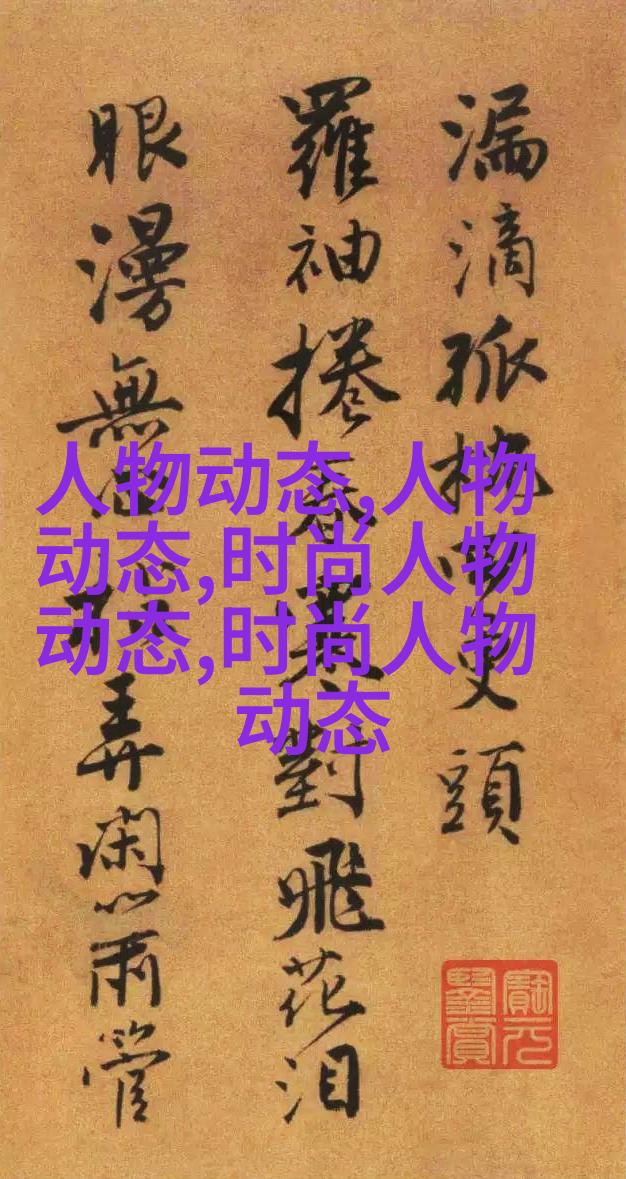 漏滴孤枕更頭
羅袖捲春對飛花泪
眼漫無弄閑管
人物动态,人物
动态,时尚人物
动态,时尚人物
动态